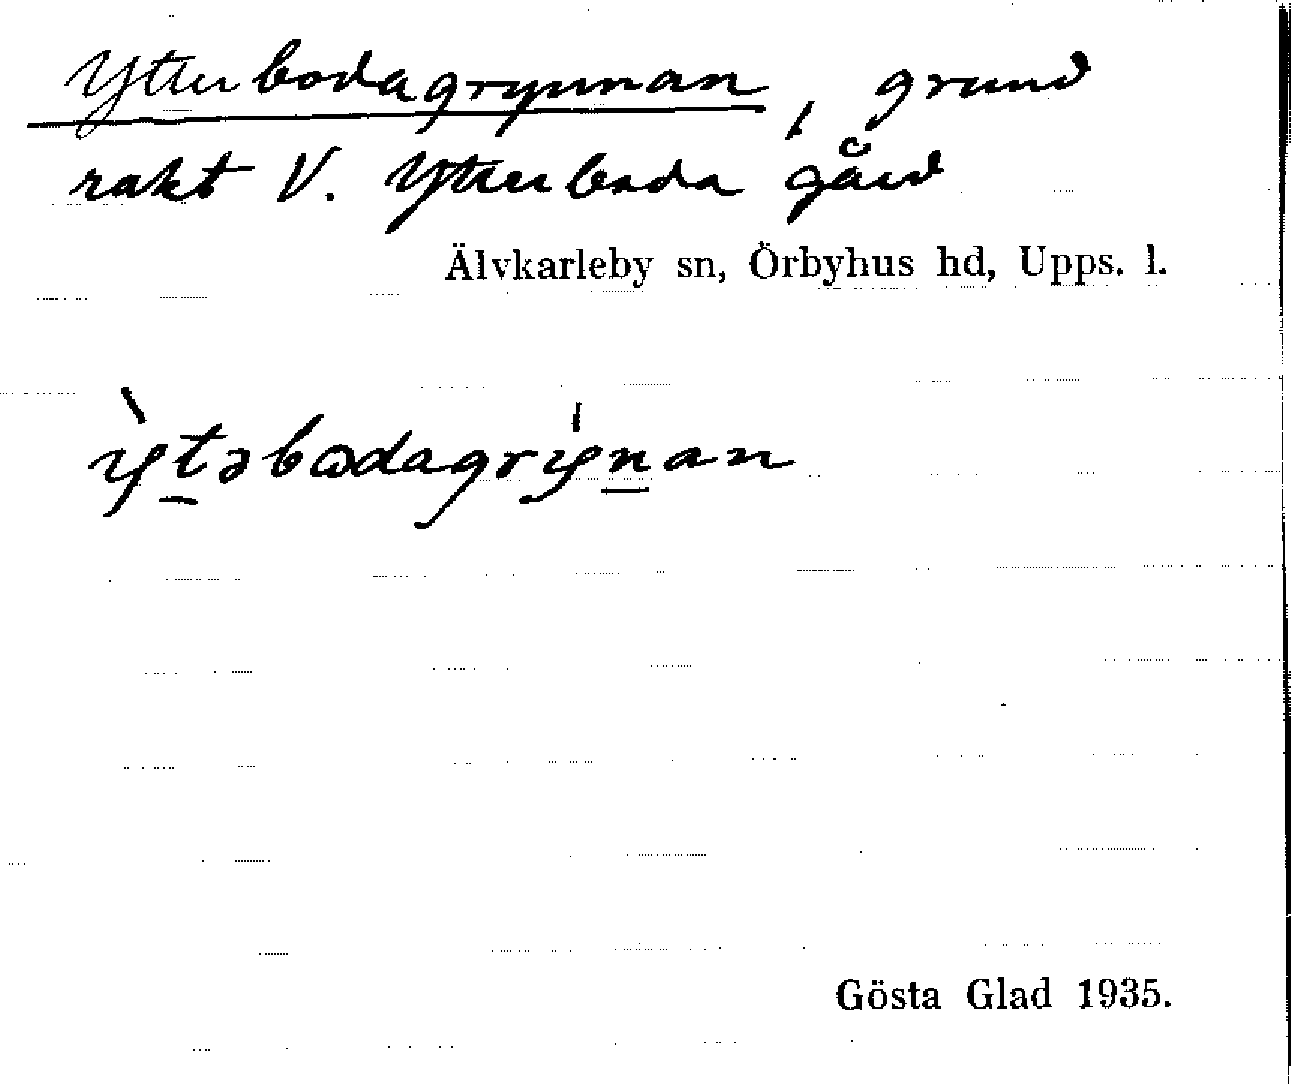 Ytterbodagrynnan, grund
rakt V. Ytterboda gård
Älvkarleby sn, Örbyhus hd, Upps. l.
ỳtəbωdagrýnan
Gösta Glad 1935.